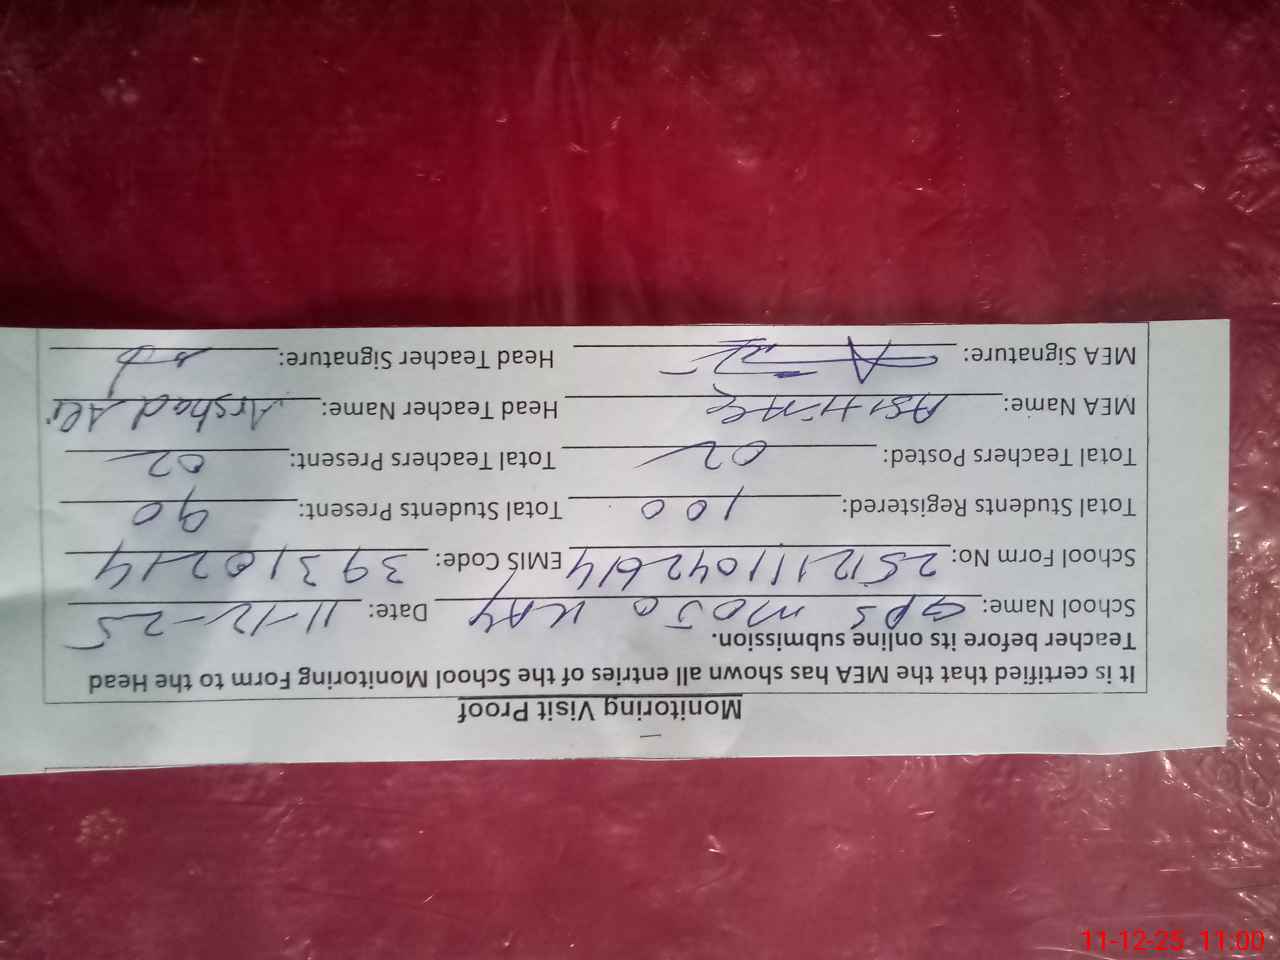 Monitoring Visit Proof
It is certified that the MEA has shown all entries of the School Monitoring Form to the Head
Teacher before its online submission.
School Name: GPS MOJO KAY Date: 11-12-25
School Form No: 251211042614 EMIS Code: 39310214
Total Students Registered: 100 Total Students Present: 90
Total Teachers Posted: 02 Total Teachers Present: 02
MEA Name: ASHFAQ Head Teacher Name: Arshad Ali
MEA Signature: Head Teacher Signature:
11-12-25 11:00